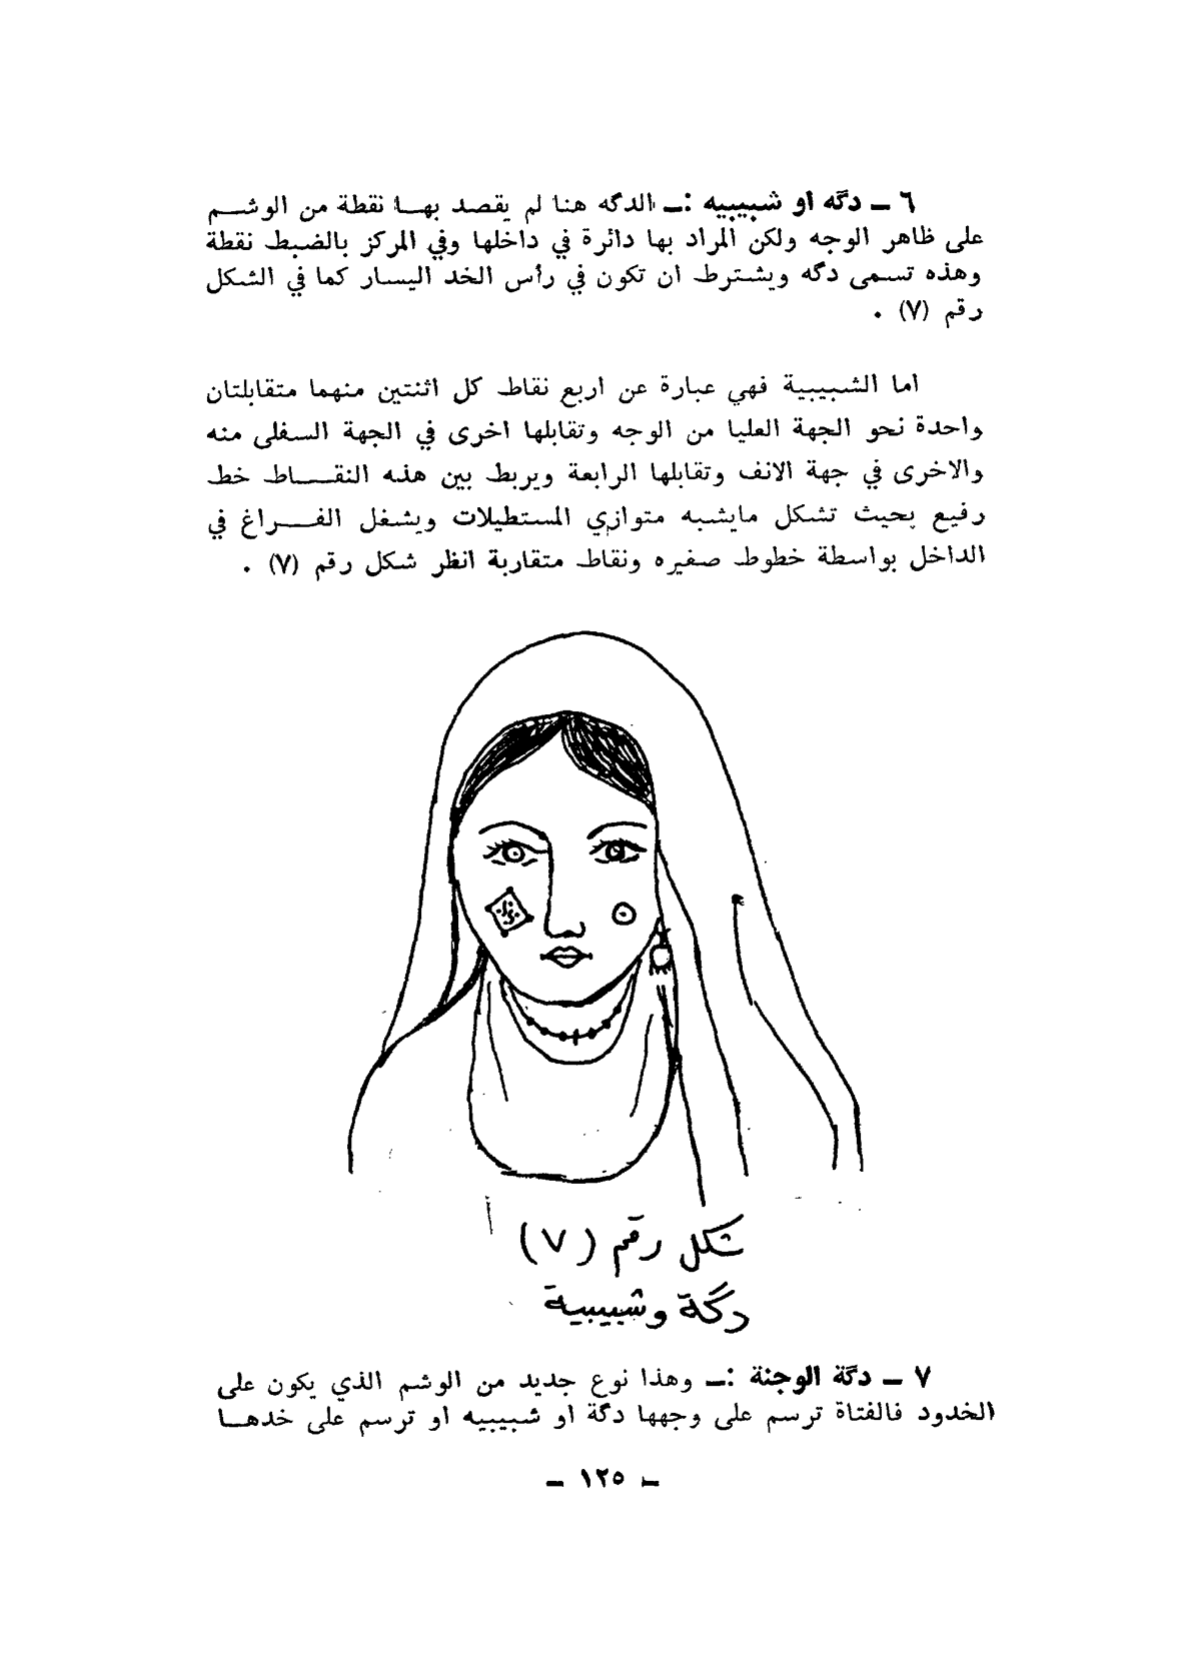 ٦ ـ دگه او شبيبيه :ـ الدگه هنا لم يقصد بهـا نقطة من الوشـم
على ظاهر الوجه ولكن المراد بها دائرة في داخلها وفي المركز بالضبط نقطة
وهذه تسمى دگه ويشترط ان تكون في رأس الخد اليسار كما في الشكل
رقم (٧) .
اما الشبيبية فهي عبارة عن اربع نقاط كل اثنتين منهما متقابلتان
واحدة نحو الجهة العليا من الوجه وتقابلها اخرى في الجهة السفلى منه
والاخرى في جهة الانف وتقابلها الرابعة ويربط بين هذه النقـاط خط
رفيع بحيث تشكل مايشبه متوازي المستطيلات ويشغل الفـراغ في
الداخل بواسطة خطوط صغيره ونقاط متقاربة انظر شكل رقم (٧) .
شكل رقم (٧)
دگة وشبيبية
٧ ـ دگة الوجنة :ـ وهذا نوع جديد من الوشم الذي يكون على
الخدود فالفتاة ترسم على وجهها دگة او شبيبيه او ترسم على خدهـا
ـ ١٢٥ ـ